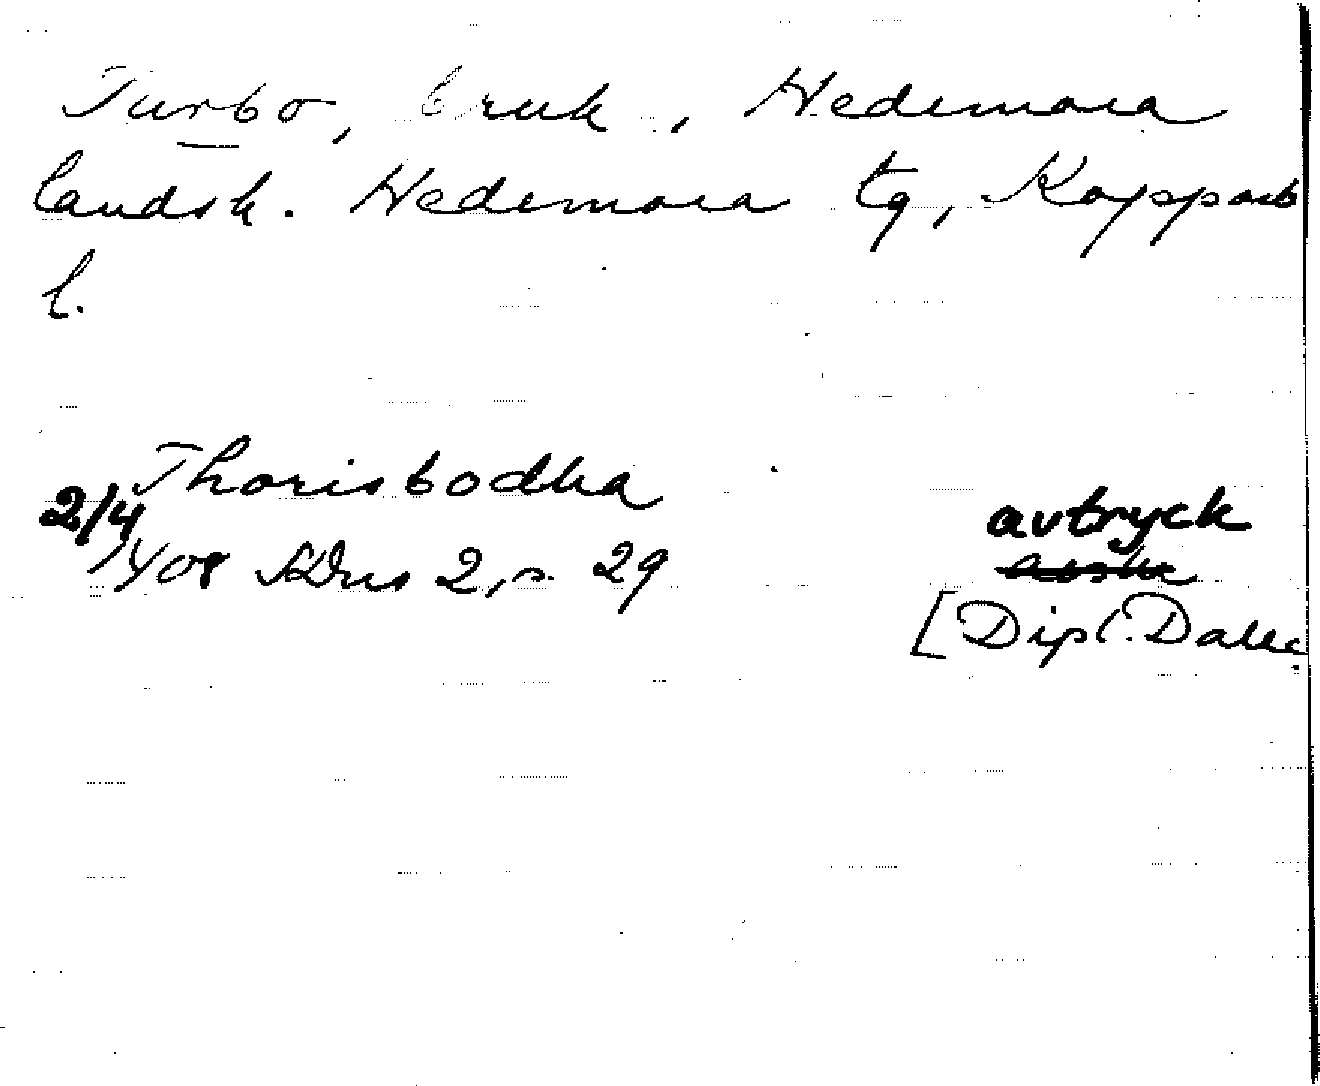 Turbo, bruk, Hedemora
landsk. Hedemora tg, Kopparb
l.
Thorisbodha
2/4 1408 SDns 2, s. 29
avtryck
[Dipl. Dalec